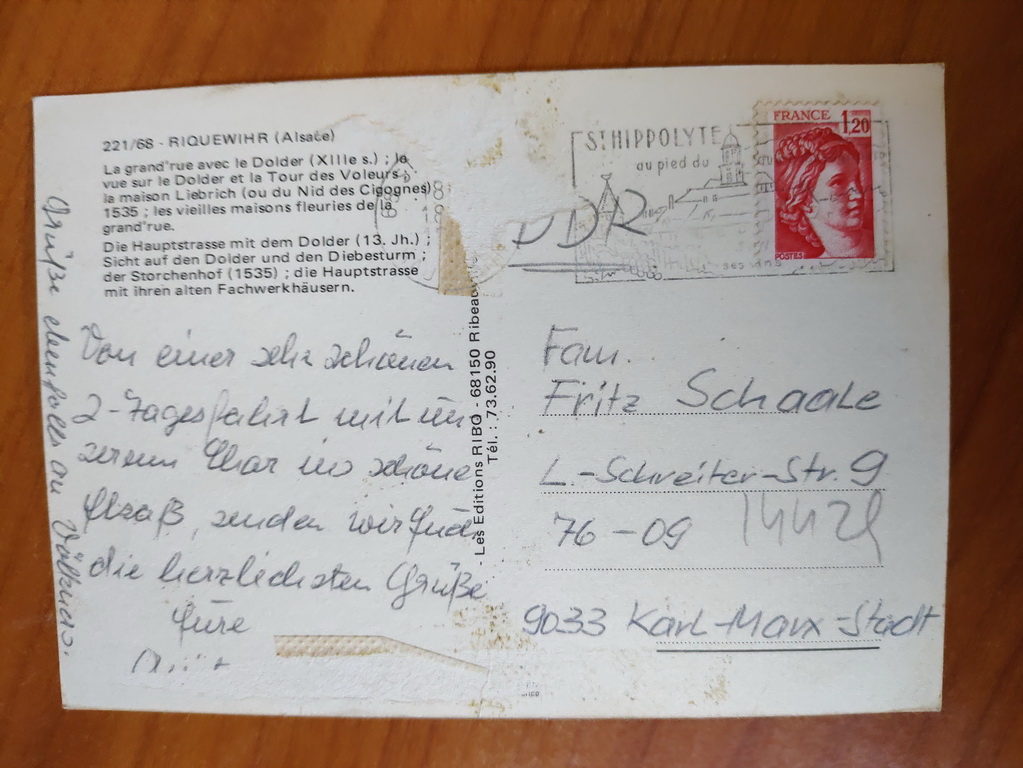 221/68 - RIQUEWIHR (Alsace)
La grand'rue avec le Dolder (XIIIe s.) ; la
vue sur le Dolder et la Tour des Voleurs ;
la maison Liebrich (ou du Nid des Cigognes)
1535 ; les vieilles maisons fleuries de la
grand'rue.
Die Hauptstrasse mit dem Dolder (13. Jh.) ;
Sicht auf den Dolder und den Diebesturm ;
der Storchenhof (1535) ; die Hauptstrasse
mit ihren alten Fachwerkhäusern.
Von einer sehr schönen
2-Tagesfahrt mit un
serem Chor ins schöne
Elzaß, senden wir Euch
die herzlichsten Grüße
Eure
Grüße ebenfalls an
Les Editions RIBO - 68150 Ribeau
Tél. : 73.62.90
ST HIPPOLYTE
au pied du
FRANCE 1,20
POSTES
DDR
Fam.
Fritz Schaale
L.-Schreiter-Str. 9
76-09
9033 Karl-Marx-Stadt